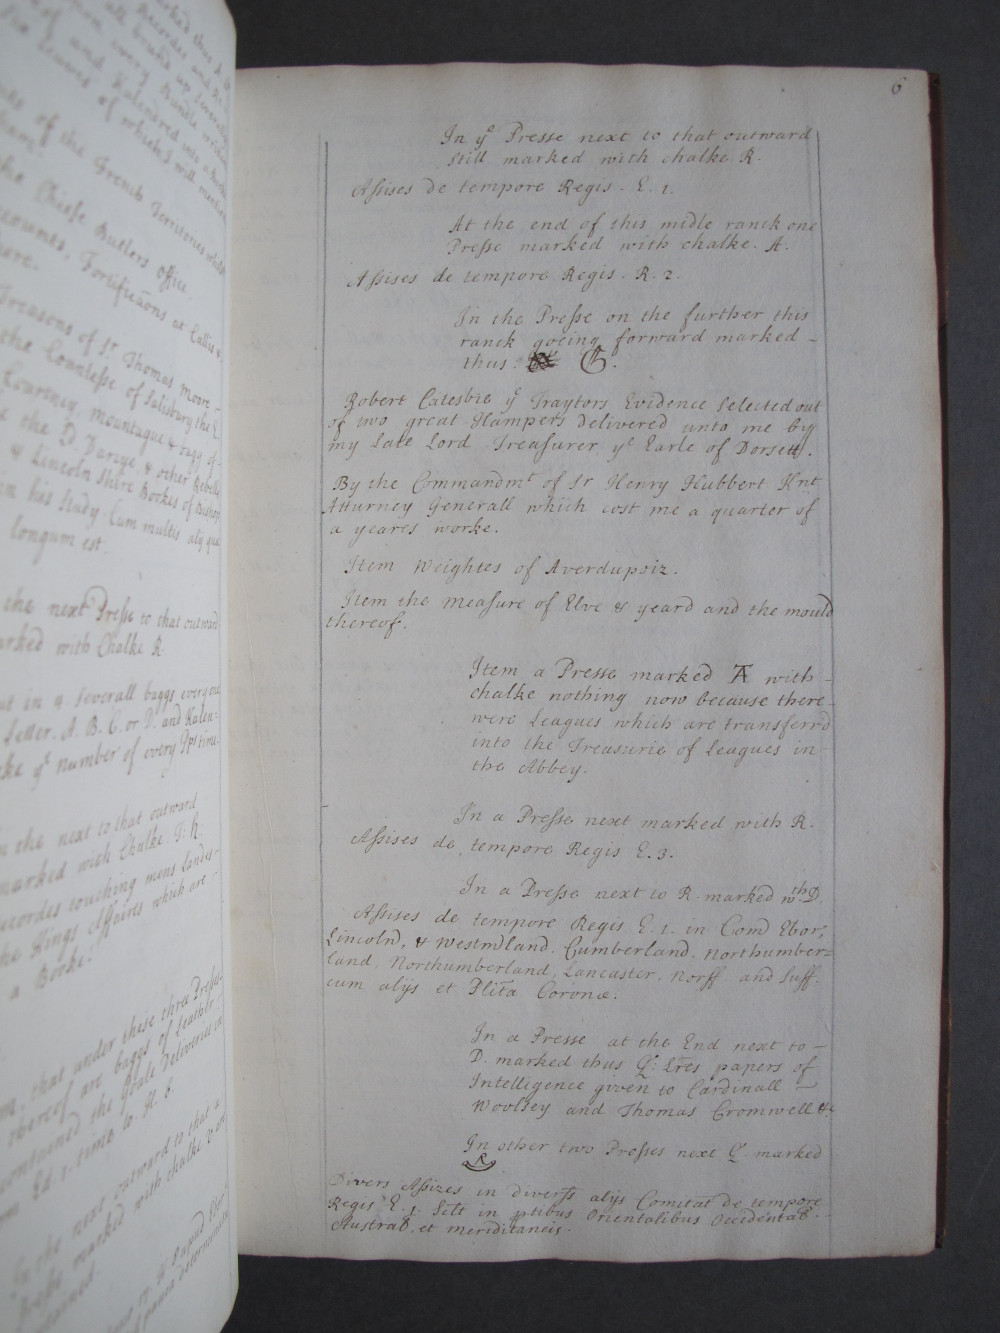 marked thus A.B
Recordes and
all brudls up severally
every Bundle
and Kalendred into a Booke
leaves of which I will mention
of the French Territories whilst
the Cheefe Butlers office.
Fortificaōns at Callis &
Treasons of Sr. Thomas Moore -
the Countesse of Salisbury the E.
Courtney, Mountague & bagg of -
the D Darcye & other Rebells
& Lincoln Shire Bookes of Bishop
in his Study Cum multis alÿ quae
longum est.
the next Presse to that outward
marked with Chalke R.
put in 9 severall baggs every one
Letter. A. B. C. or D. and Kalen-
ye number of every Kps time.
in the next to that outward
marked with Chalke. I: R.
Recordes touching mens Landes -
the Kings Affaires which are -
a Booke.
that under these thre Presses
thereof are baggs of Leather
contained the Goale Deliveries
Ed 1. time to H. 6.
In the next outward to that a
Presse marked with chalke
contained
6
In ye Presse next to that outward
Still marked with chalke R.
Assises de tempore Regis. E. 1.
At the end of this midle ranck one
Presse marked with chalke. A.
Assises de tempore Regis. R. 2.
In the Presse on the further this
ranck goeing forward marked -
thus: G.
Robert Catesbie ye Traytors Evidence Selected out
of two great Hampers delivered unto me by
my Late Lord Treasurer ye Earle of Dorsett.
By the Commandmt of Sr Henry Hubbert Knt
Atturney Generall which cost me a quarter of
a yeares worke.
Item Weightes of Averdupoiz.
Item the Measure of Elve & yeard and the mould
thereof.
Item a Presse marked A with -
chalke nothing now because there -
were Leagues which are transferrd
into the Treasurie of Leagues in -
the Abbey.
In a Presse next marked with R.
Assises de tempore Regis E. 3.
In a Presse next to R. marked wth D.
Assises de tempore Regis E. 1. in Com̄ Ebor,
Lincoln̄, & Westm̄land. Cumberland. Northumber=
land. Northumberland, Lancaster. Norff and Suff.
cum alÿs et Pl̄ita Coronæ.
In a Presse at the End next to -
D. marked thus Q: L̄res papers of
Intelligence given to Cardinall -
Woolsey and Thomas Cromwell &c
In other two Presses next Q. marked
R
Divers Assizes in divers̄ alÿs Comitat de tempore
Regis E. 1. Sc̄lt in p̄tibus Orientalibus Occidental̄. -
Austral̄, et meriditaneis.